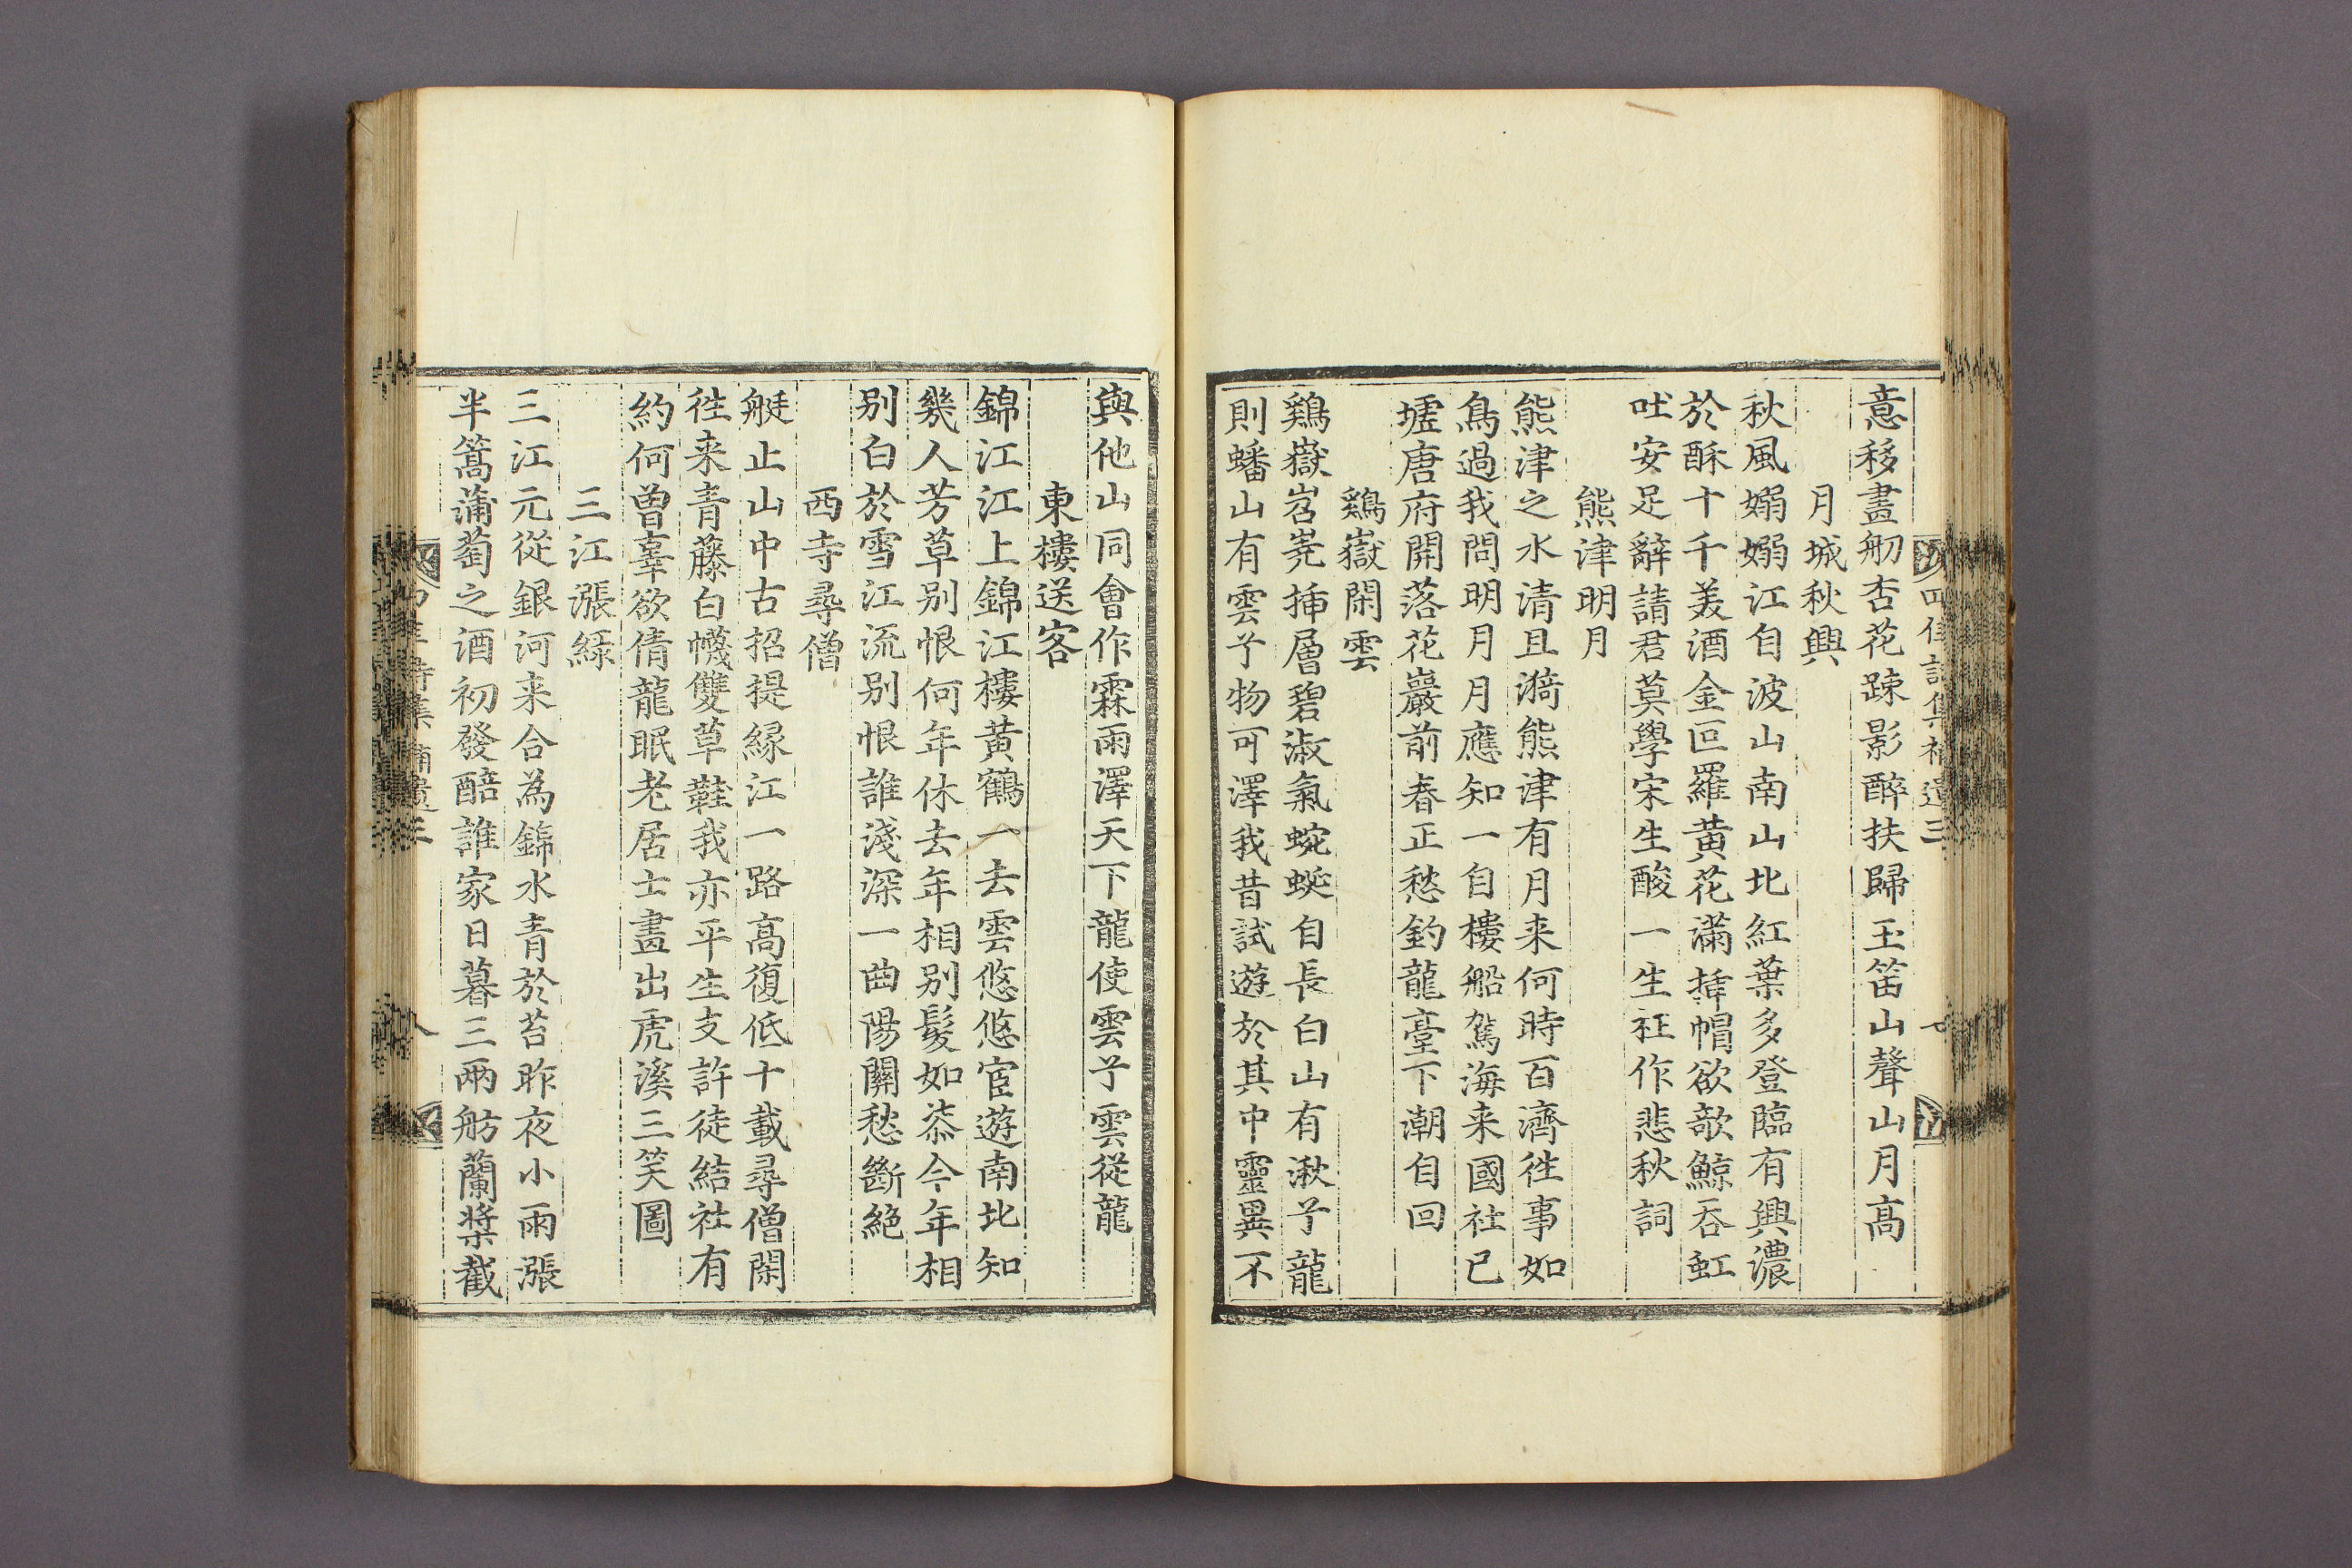 意移畫舠杏花踈影醉扶歸玉笛山聲山月高
月城秋興
秋風嫋嫋江自波山南山北紅葉多登臨有興濃
於酥十千美酒金叵羅黄花滿揷帽欲欹鯨吞虹
吐安足辭請君莫學宋生酸一生狂作悲秋詞
熊津明月
熊津之水清且漪熊津有月来何時百濟徃事如
鳥過我問明月月應知一自樓船駕海来國社已
墟唐府開落花巖前春正愁釣龍臺下潮自回
鷄嶽閑雲
鷄嶽岧嶤揷層碧淑氣蜿蜒自長白山有湫兮龍
則蟠山有雲兮物可澤我昔試遊於其中靈異不
與他山同會作霖雨澤天下龍使雲兮雲從龍
東樓送客
錦江江上錦江樓黄鶴一去雲悠悠宦遊南北知
幾人芳草别恨何年休去年相别髮如漆今年相
别白於雪江流别恨誰淺深一曲陽關愁斷絶
西寺尋僧
艇止山中古招提縁江一路高復低十載尋僧閑
徃来青藤白襪雙草鞋我亦平生支許徒結社有
約何曽辜欲倩龍眠老居士畫出虎溪三笑圖
三江漲緑
三江元從銀河来合為錦水青於苔昨夜小雨漲
半篙蒲萄之酒初發醅誰家日暮三兩舫蘭槳截